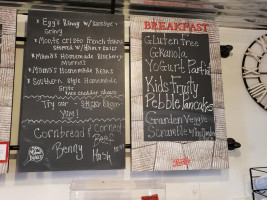 Egg's Benny w/ Sausage
Gravy
Monte Cristo French Toast
Stuffed w/ Ham + Swiss
Mama's Homemade Blueberry
Muffins
Mama's Homemade Beans
Southern Style Homemade
Grits
Try our
Sticky Buns
Yum!
Cornbread + Corned
Beef
Benny Hash
BREAKFAST
Gluten Free
Granola
Yogurt Parfait
Kids Fruity
Pebble Pancakes
Garden Veggie
Scramble